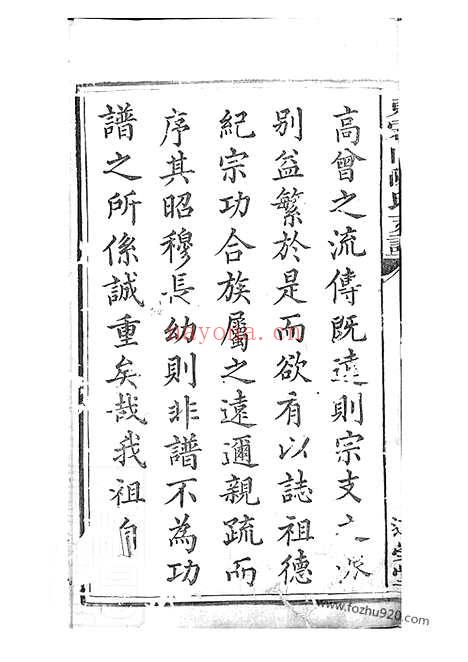 高曾之流傳既遠則宗支之派
別益繁於是而欲有以誌祖德
紀宗功合族屬之遠邇親疏而
序其昭穆長幼則非譜不為功
譜之所係誠重矣哉我祖自
nayona.cn
www.fozhu920.com